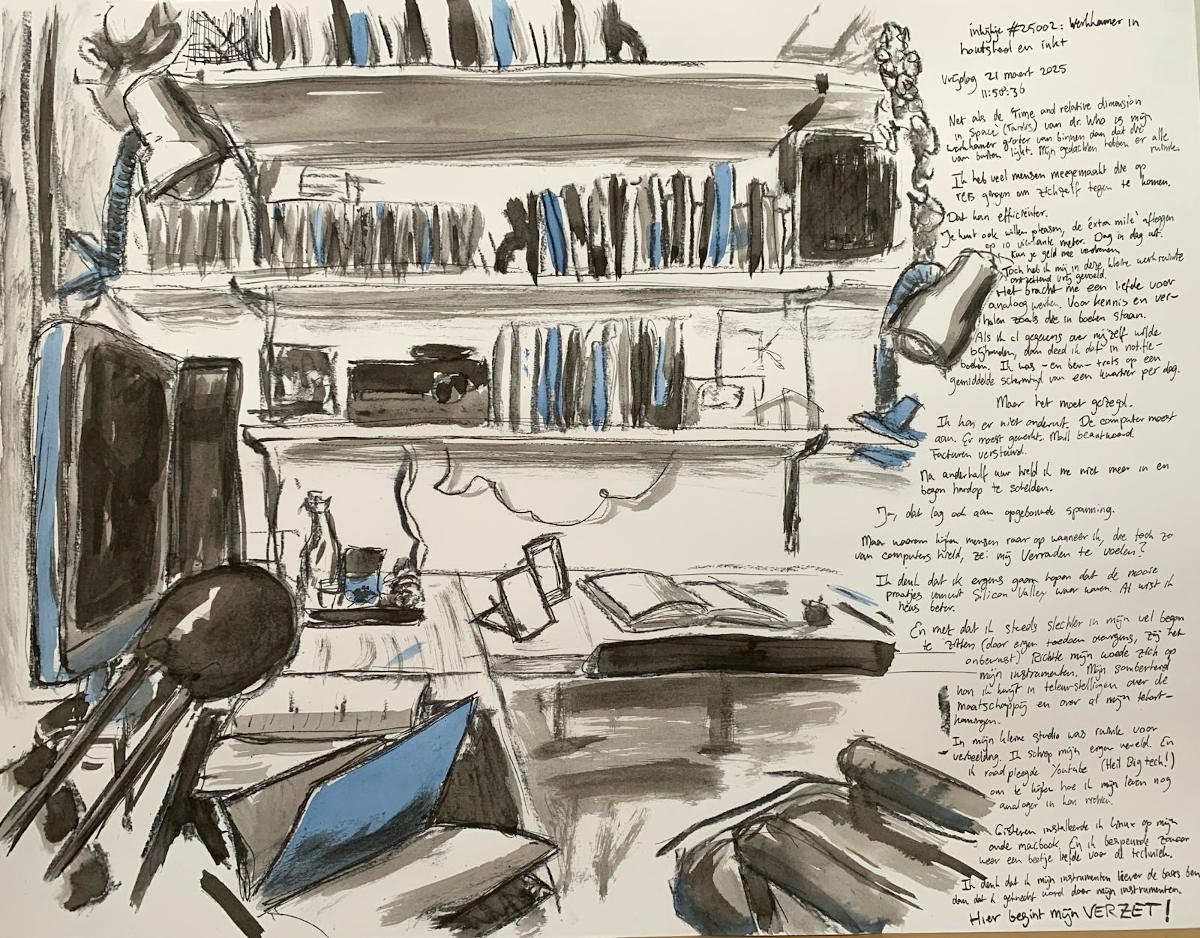 inkijkje #25002: Werkkamer in
houtskool en inkt
Vrijdag 21 maart 2025
11:50:36
Net als de 'Time and relative dimension
in Space' (Tardis) van dr. Who is mijn
werkkamer groter van binnen dan dat die
van buiten lijkt. Mijn gedachten hebben er alle
ruimte.
Ik heb veel mensen meegemaakt die op
reis gingen om zichzelf tegen te komen.
Dat kan efficiënter.
Je kunt ook willen pleasen, de 'éxtra mile' afleggen
op 10 vierkante meter. Dag in dag uit.
Kun je geld mee verdienen.
Toch heb ik mij in deze kleine werkruimte
ontzettend vrij gevoeld.
Het bracht me een liefde voor
analoog werken. Voor kennis en ver-
halen zoals die in boeken staan.
Als ik al gegevens over mijzelf wilde
bijhouden, dan deed ik dat in notitie-
boeken. Ik was - en ben - trots op een
gemiddelde schermtijd van een kwartier per dag.
Maar het moet gezegd.
Ik kon er niet onderuit. De computer moest
aan. Er moest gewerkt. Mail beantwoord.
Facturen verstuurd.
Na anderhalf uur hield ik me niet meer in en
begon hardop te schelden.
Ja, dat lag ook aan opgebouwde spanning.
Maar waarom kijken mensen raar op wanneer ik, die toch zo
van computers hield, zei mij verraden te voelen?
Ik denk dat ik ergens gaan hopen dat de mooie
praatjes vanuit Silicon Valley waar waren. Al wist ik
heus beter.
En met dat ik steeds slechter in mijn vel begon
te zitten (door eigen toedoen overigens, zij het
onbewust) richtte mijn woede zich op
mijn instrumenten. Mijn
kon ik kwijt in teleurstellingen over de
maatschappij en over al mijn tekort-
komingen.
In mijn kleine studio was ruimte voor
verbeelding. Ik schiep mijn eigen wereld. En
ik raadpleegde Youtube (Heil Big tech!)
om te kijken hoe ik mijn leven nog
analoger in kon richten.
Gisteren installeerde ik Linux op mijn
oude macbook. En ik bespeurde zowaar
weer een beetje liefde voor de techniek.
Ik denk dat ik mijn instrumenten liever de baas ben
dan dat ik geknecht word door mijn instrumenten.
Hier begint mijn VERZET!